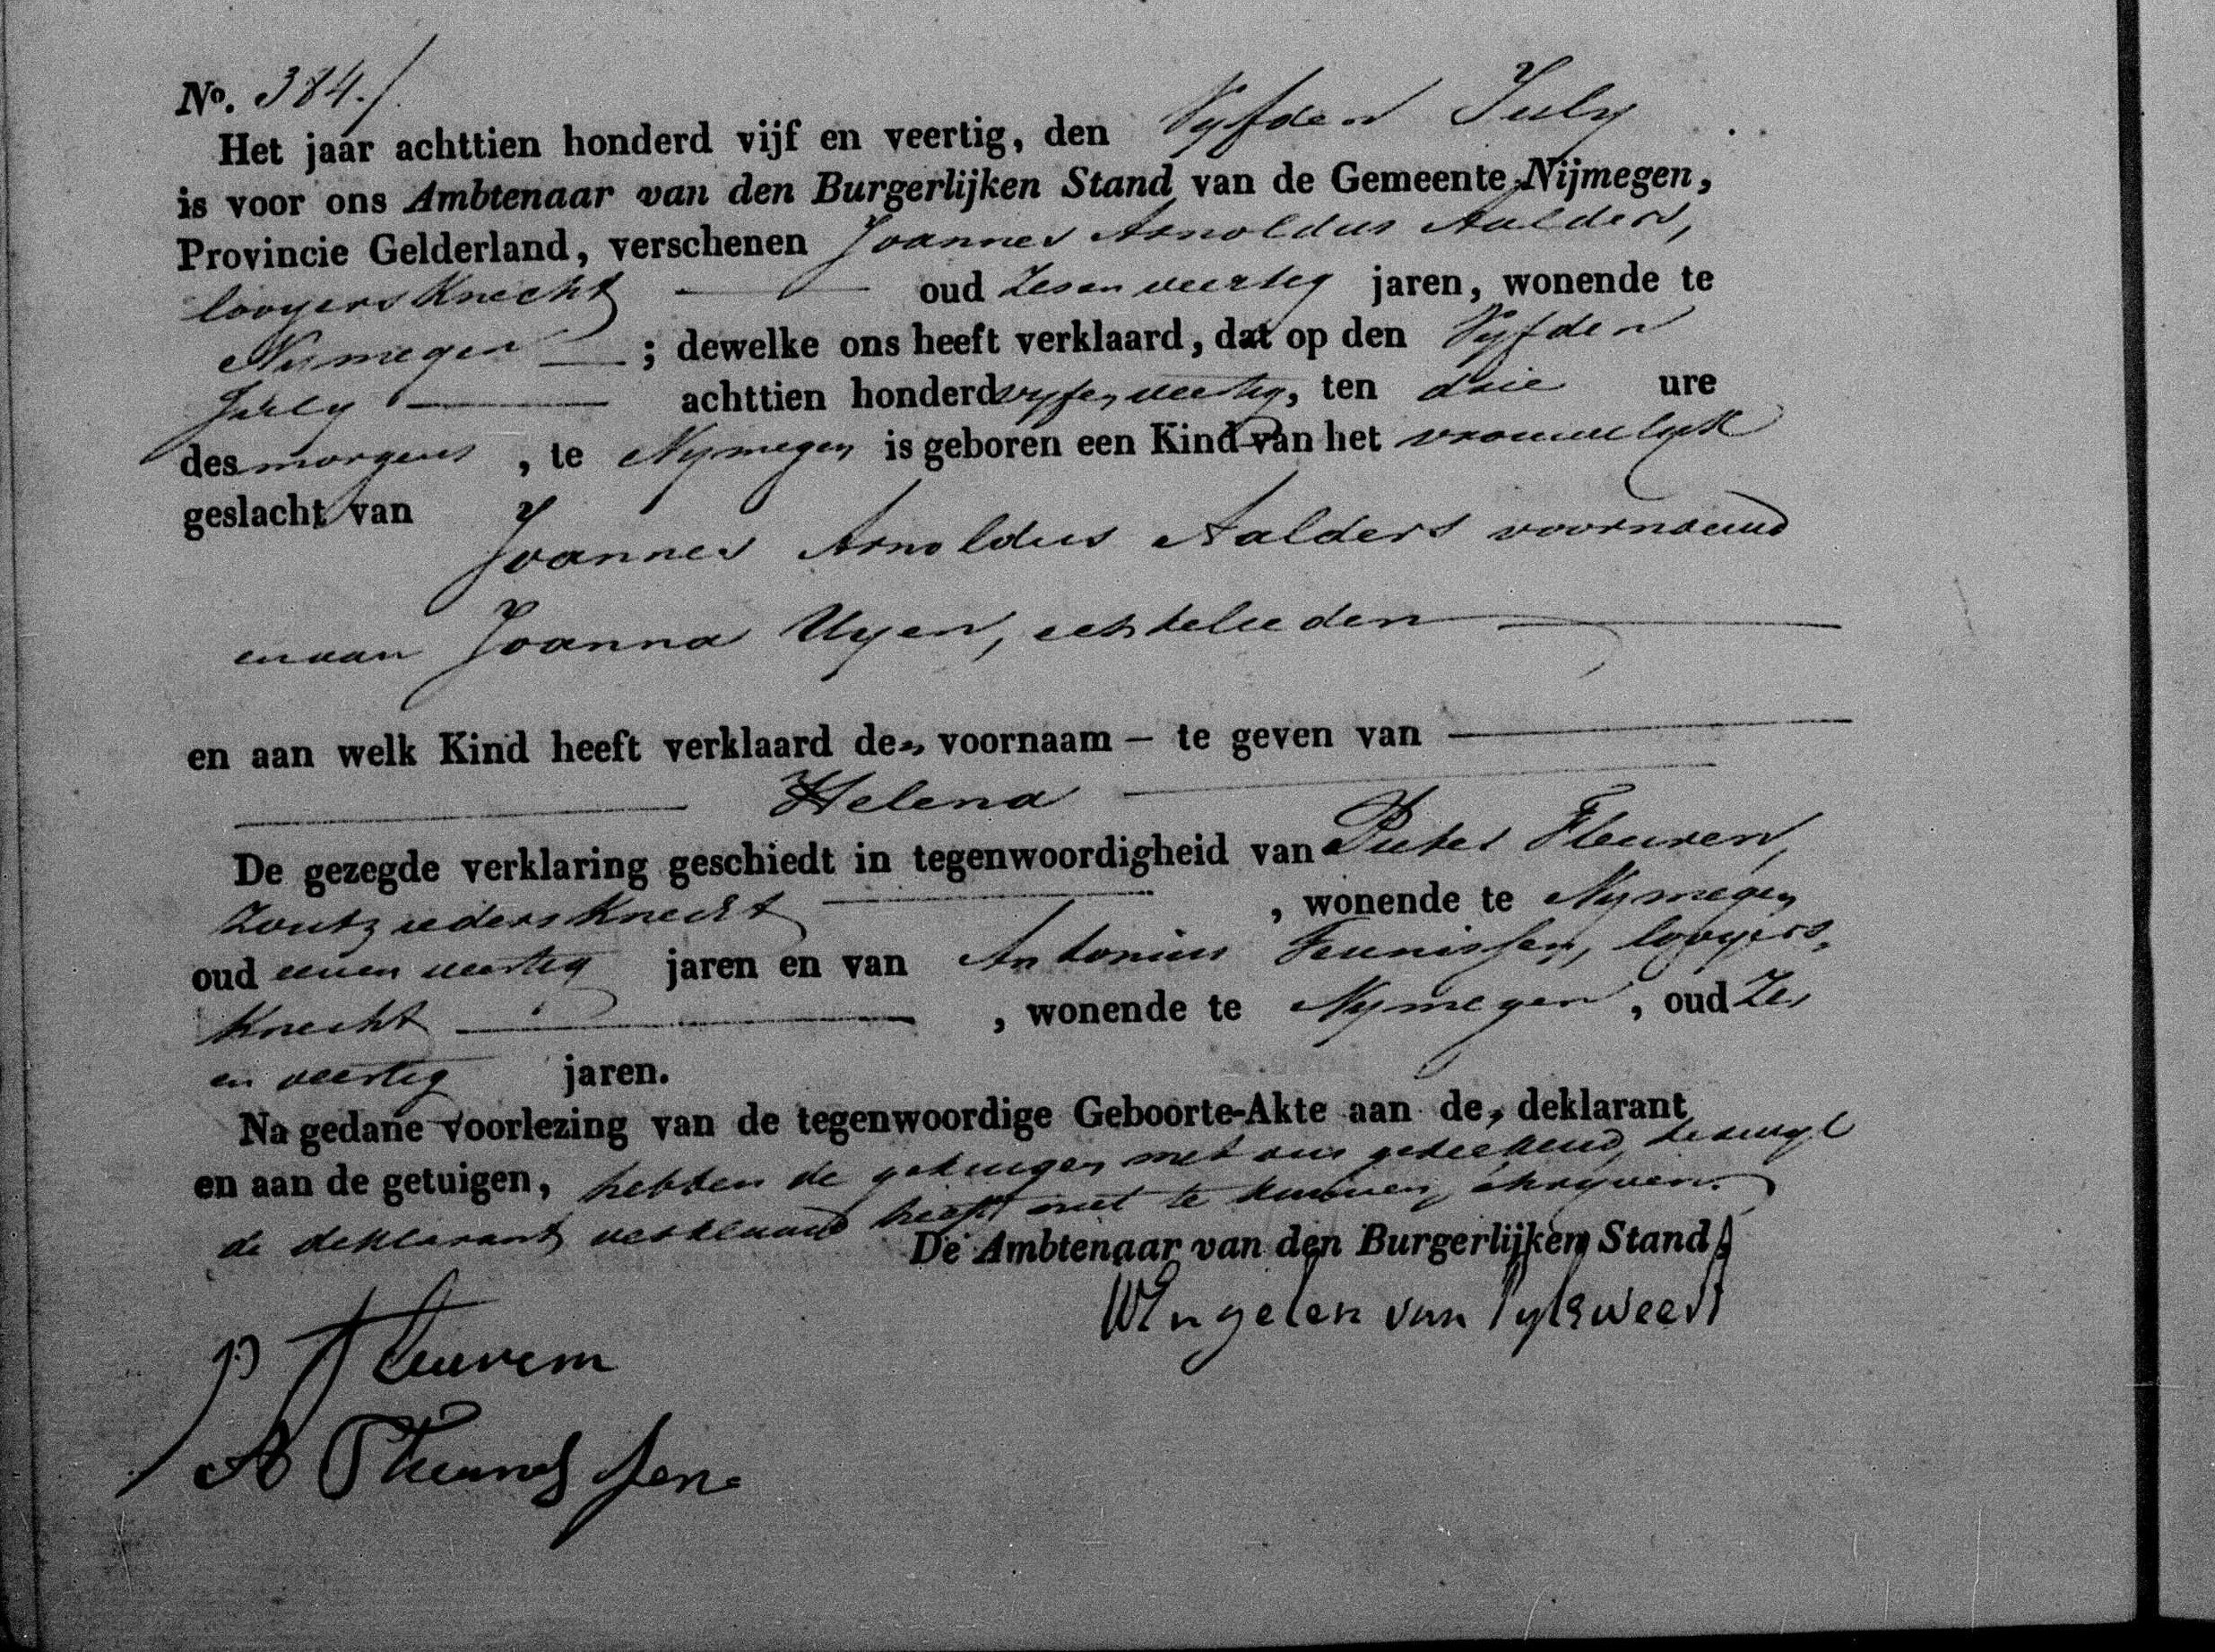 No. 384./.
Het jaar achttien honderd vijf en veertig, den Vyfden July
is voor ons Ambtenaar van den Burgerlijken Stand van de Gemeente Nijmegen,
Provincie Gelderland, verschenen Joannes Arnoldus Aalders,
looyers Knecht — oud Zes en veertig jaren, wonende te
Nymegen — ; dewelke ons heeft verklaard, dat op den Vyfden
July — achttien honderd vyf en veertig, ten drie ure
des morgens , te Nymegen is geboren een Kind van het vrouwelyk
geslacht van
Joannes Arnoldus Aalders voornoemd
en van Joanna Uyen, echtelieden —
en aan welk Kind heeft verklaard den voornaam — te geven van —
— Helena —
De gezegde verklaring geschiedt in tegenwoordigheid van Pieter Fleuren,
Zoutzieders Knecht — , wonende te Nymegen
oud een en veertig jaren en van Antonius Teunissen, looyers
Knecht — , wonende te Nymegen , oud Zes
en veertig jaren.
Na gedane voorlezing van de tegenwoordige Geboorte-Akte aan de, deklarant
en aan de getuigen, hebben de getuigen met ons geteekend, terwyl
de deklarant verklaard heeft niet te kunnen schryven.
De Ambtenaar van den Burgerlijken Stand
W Engelen van Pylsweert
P Fleuren
A Theunissen